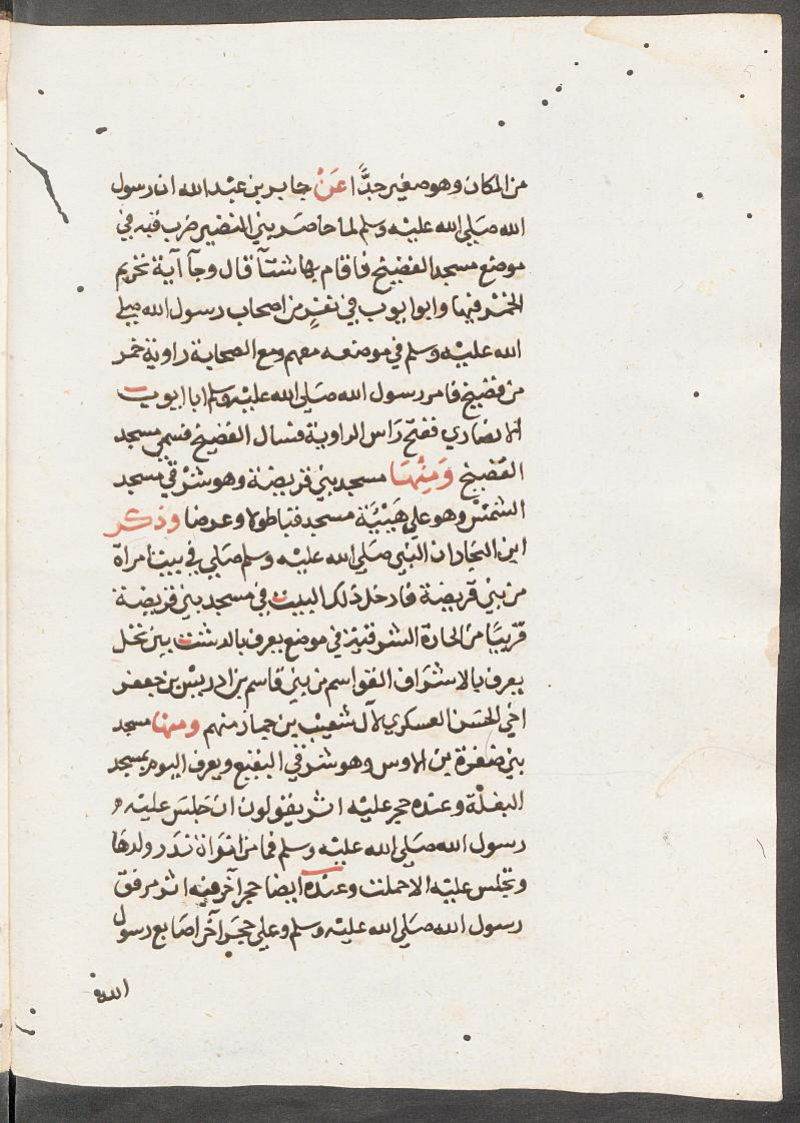 من المكان وهو صغير جدًّا عَنْ جابر بن عبد الله ان رسول
الله صَلي الله عليْه وسلم لما حاصَر بني النضير ضرب قبه في
موضع مسجد الفضيخ فاقام بها ستآ قال وجآ آية تحريم
الخمْر فيها وابوايوب في نفرٍ من اصحاب رسول الله صلي
الله عليْه وسلم في موضعه معهم ومع الصحابة راوية خمر
من فضيخ فامر رسول الله صَلي الله عليْه وسلم ابا ايوب
الانصاري ففتح رَاس الراوية فسال الفضيخ فسمي مسجد
الفضيخ وَمِنْهَا مسجد بني قريضة وهو شرْقي مسجد
الشمسْ وهو علي هَيْئَة مسجد قبا طولا وعرضا وذكر
ابن النجار ان النبي صَلي الله عليْه وسلم صَلي في بيت امراة
من بني قريضة فادخل ذلك البيت في مسجد بني قريضة
قريبًا من الحارة الشرقية في موضع يعرف بالدشت بين نخل
يعرف بالاشرَاف القواسم من بني قاسم بن ادريسْ بن جعفر
اخي الحسَن العسكري لآل شعيْب بن جماز منهم ومنها مسجد
بني ضفرة من الاوس وهو شرقي البقيع ويعرف اليوم بمسجد
البغلة وعنده حجر عليْه اثر يقولون ان جَلسَ عليْه
رسول الله صَلي الله عليْه وسلم فما من امرَاة نَدَر ولدهَا
وتجلس عليْه الا حملت وعنده ايضا حجر آخر فيه اثر مرفق
رسول الله صَلي الله عليْه وسلم وعلي حجَر آخر اصَابع رسول
الله